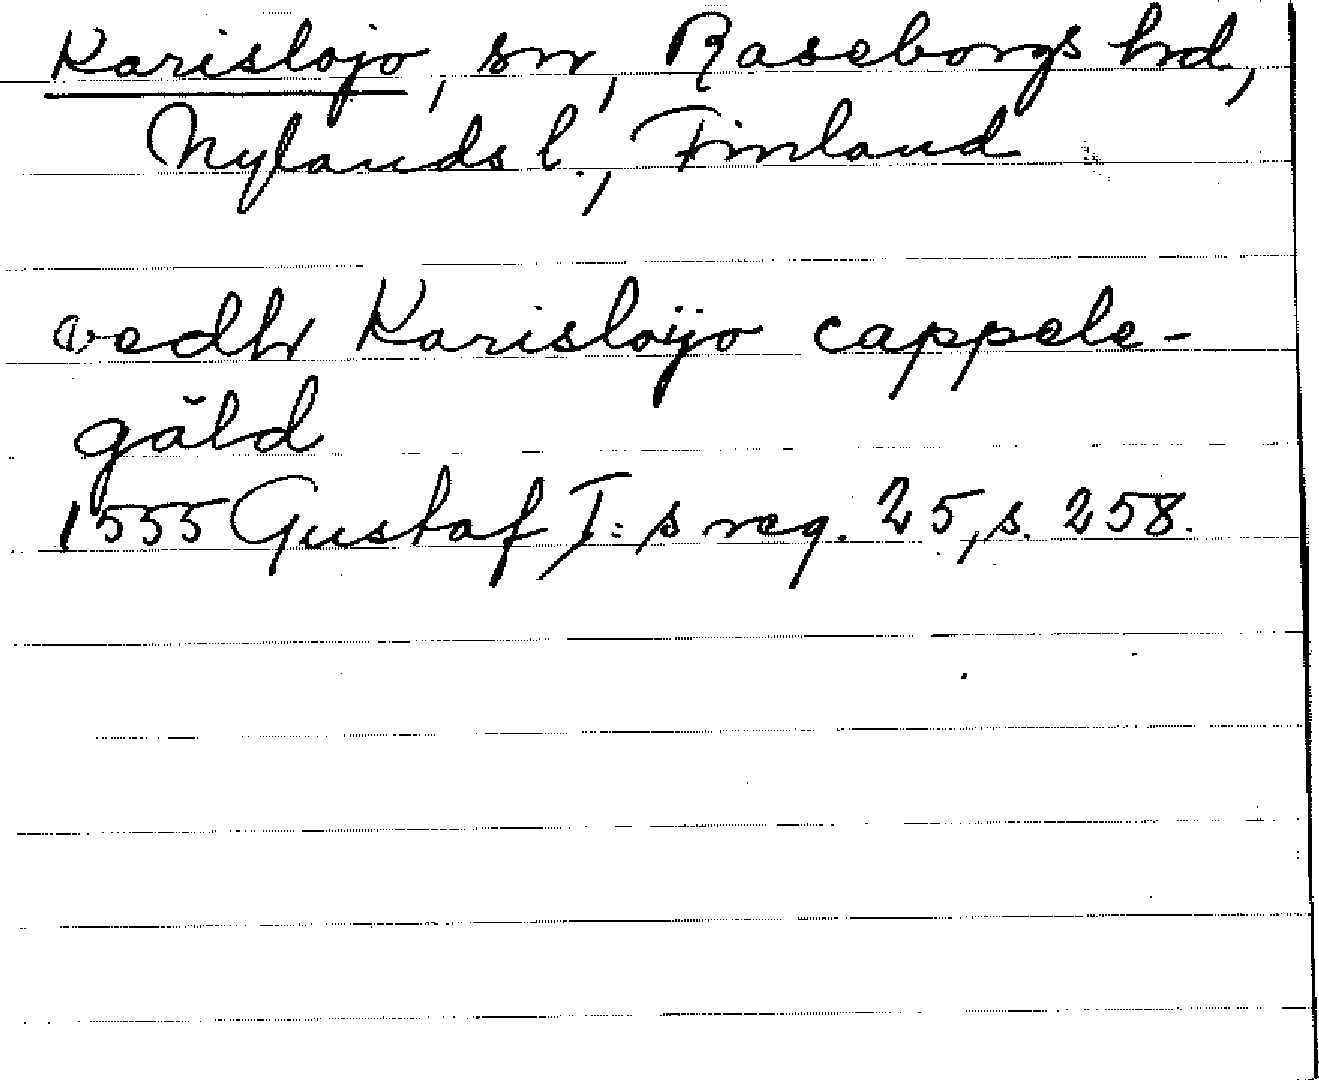 Karislojo, sn, Raseborgs hrd,
Nylands l., Finland
vedh Karisloÿo cappele-
gäld
1555 Gustaf I:s reg. 25, s. 258.